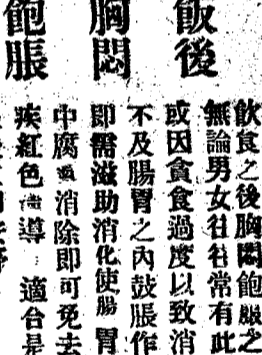 飯後
胸悶
飽脹
飲食之後胸悶飽脹之
無論男女往往常有此
或因貪食過度以致消
不及腸胃之內鼓脹作
即需滋助消化使腸胃
中腐消除即可免去
疾紅色導適合是